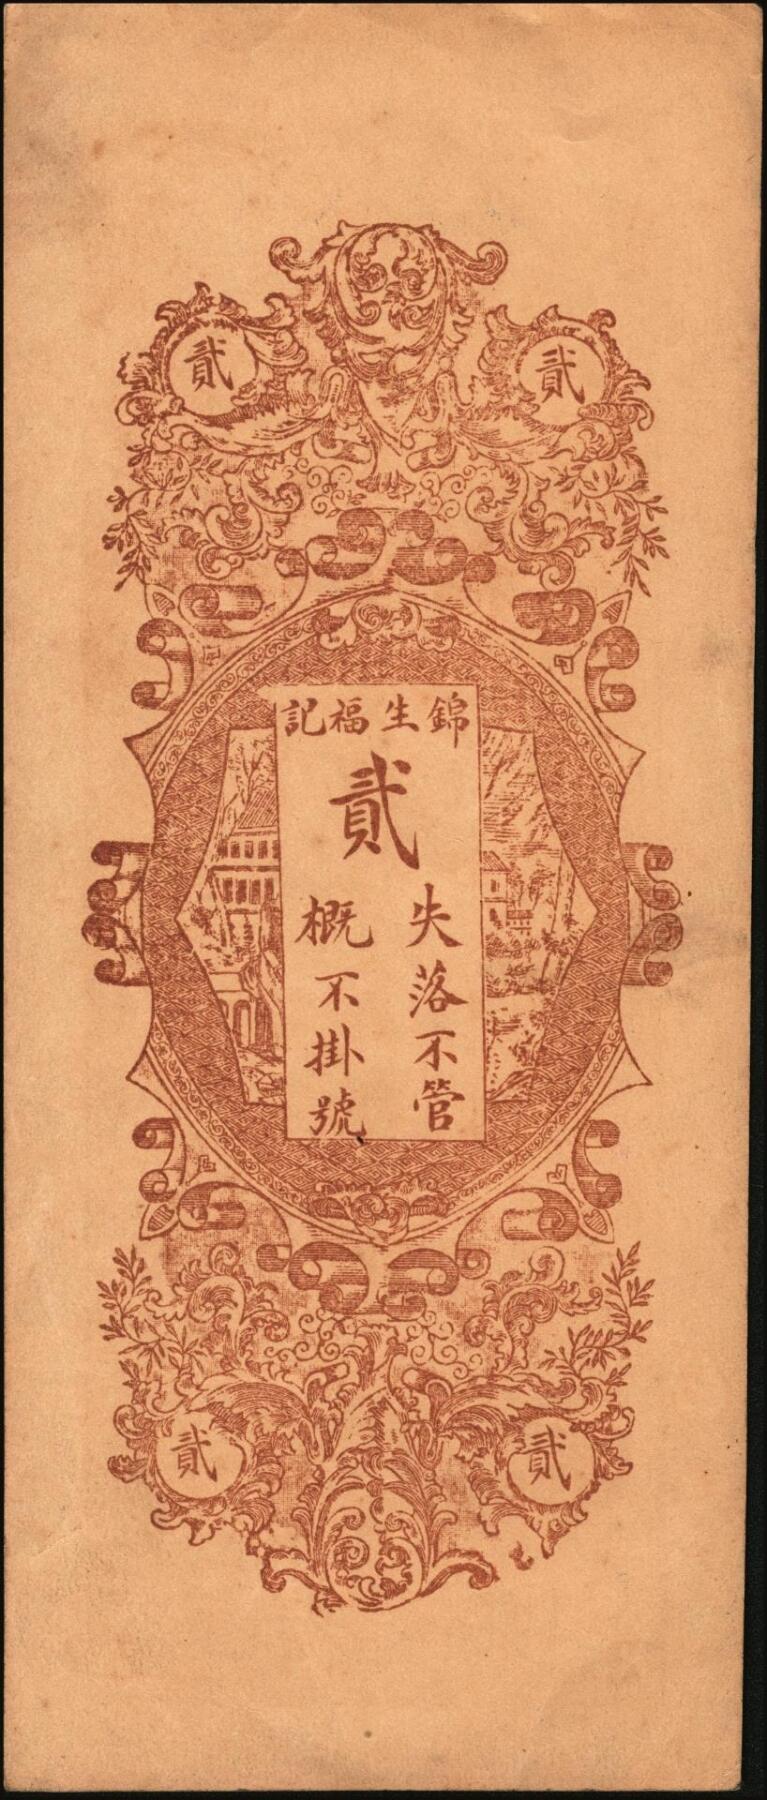 貳
貳
錦生福記
貳
失落不管
概不掛號
貳
貳